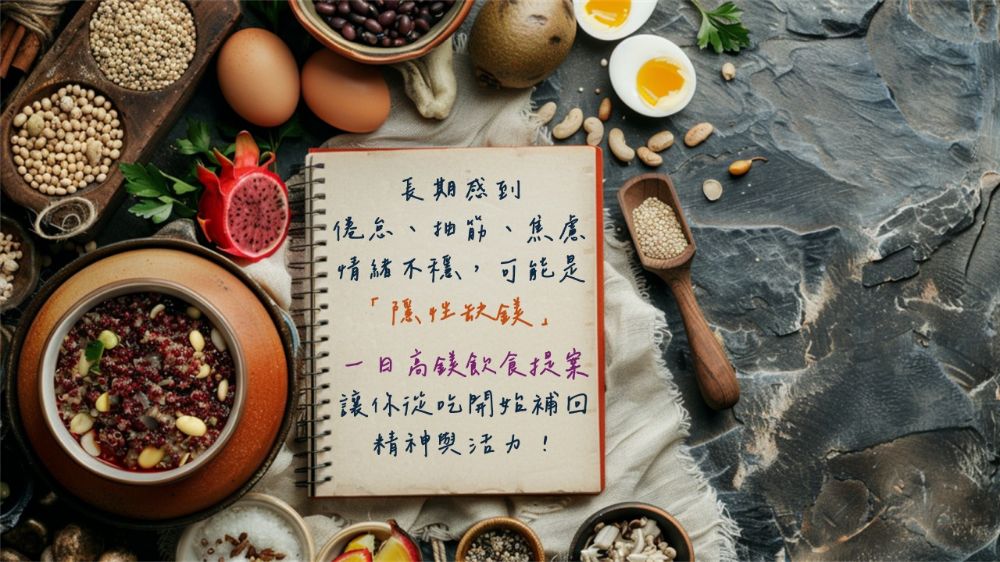 長期感到
倦怠、抽筋、焦慮
情緒不穩，可能是
「隱性缺鎂」
一日高鎂飲食提案
讓你從吃開始補回
精神與活力！